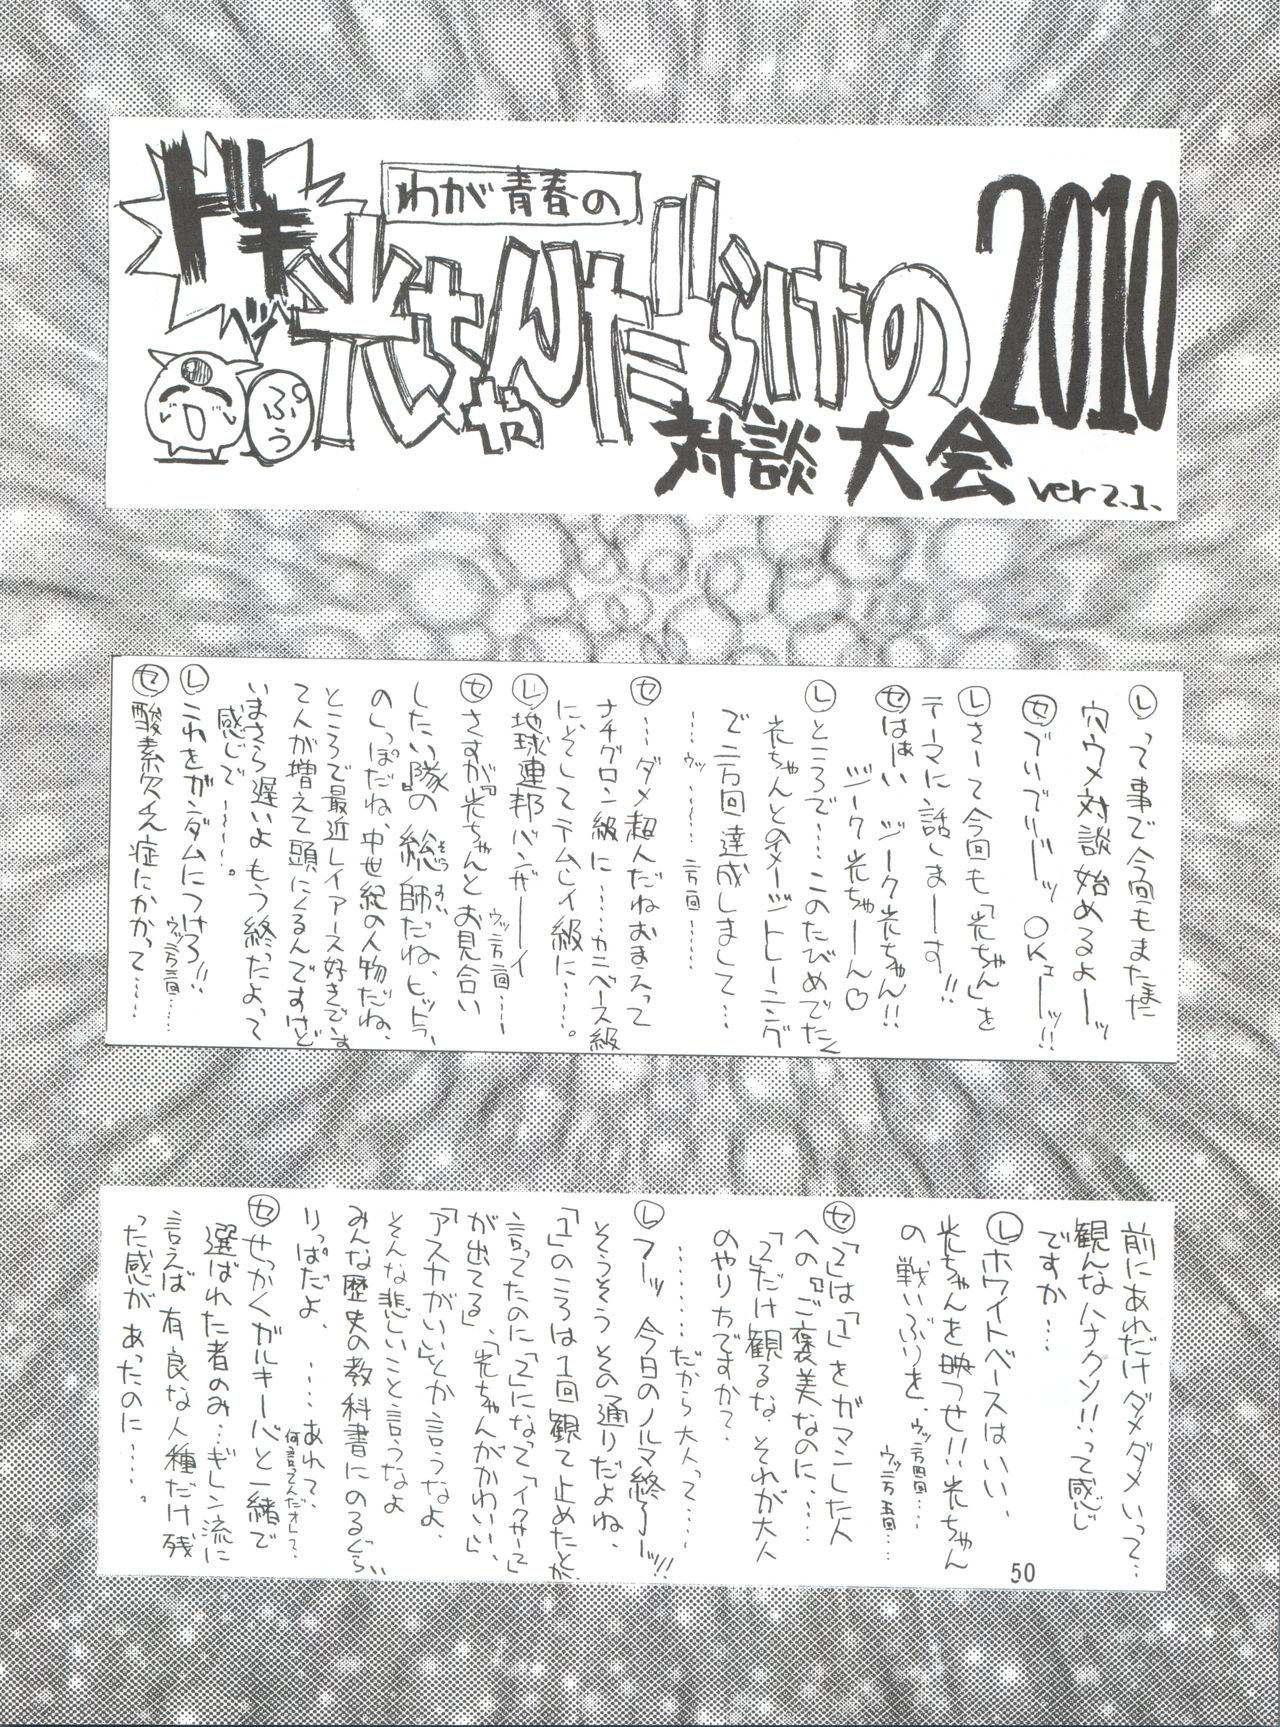 ドキ
わが青春の
光ちゃんだらけの
2010
ぷぅ
対談大会 ver2.1.
Ⓛって事で今回もまたまた
穴ウメ対談始めるよーッ
Ⓢ
Ⓛさーて今回も「光ちゃん」を
テーマに話しまーす!!
㋝はぁい ジーク光ちゃん!!
ジーク光ちゃーん♡
Ⓛところで…このたびめでたく
光ちゃんとのイメージトレーニング
で二万回達成しまして…
㋝…ダメ超人だねおまえって
ナチグロン級に……カニベース級
に、そしてテムレイ級に……。
Ⓛ地球連邦バンザーイ
㋝さすが『光ちゃんとお見合い
したい隊』の総師だね、ヒットラー
のしっぽだね、中世紀の人物だね、
ところで最近レイアース好きですっ
て人が増えて頭にくるんですけど
いまさら遅いよもう終ったよって
感じで……。
Ⓛこれをガンダムにつけろ!!
㋝酸素欠乏症にかかって……
前にあれだけダメダメいって…
観んなハナクソ!!って感じ
ですか…
Ⓛホワイトベースはいい、
光ちゃんを映つせ!!光ちゃん
の戦いぶりを、
㋝「2」は「1」をガマンした人
への『ご褒美なのに……
「2」だけ観るな、それが大人
のやり方ですか?
……だから大人って……
Ⓛフーッ 今日のノルマ終了ーッ!!
そうそうその通りだよね、
「1」のころは1回観て止めたとか
言ってたのに「2」になって「イクサー」
が出てる」、「光ちゃんがかわいい」、
「アスカがいい」とか言うなよ、
そんな悲しいこと言うなよ
みんな歴史の教科書にのるぐらい
りっぱだよ、……あれて、
何言ってんだオレて、
㋝せっかくガルキーバと一緒で
選ばれた者のみ…ギレン流に
言えば有良な人種だけ残
った感があったのに……。
50